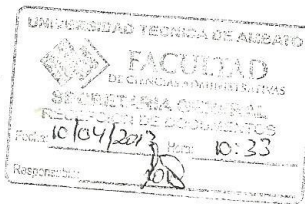 UNIVERSIDAD TECNICA DE AMBATO
FACULTAD
DE CIENCIAS ADMINISTRATIVAS
SECRETARIA GENERAL
RECEPCION DE DOCUMENTOS
Fecha: 10/04/2013 Hora: 10:33
Responsable: